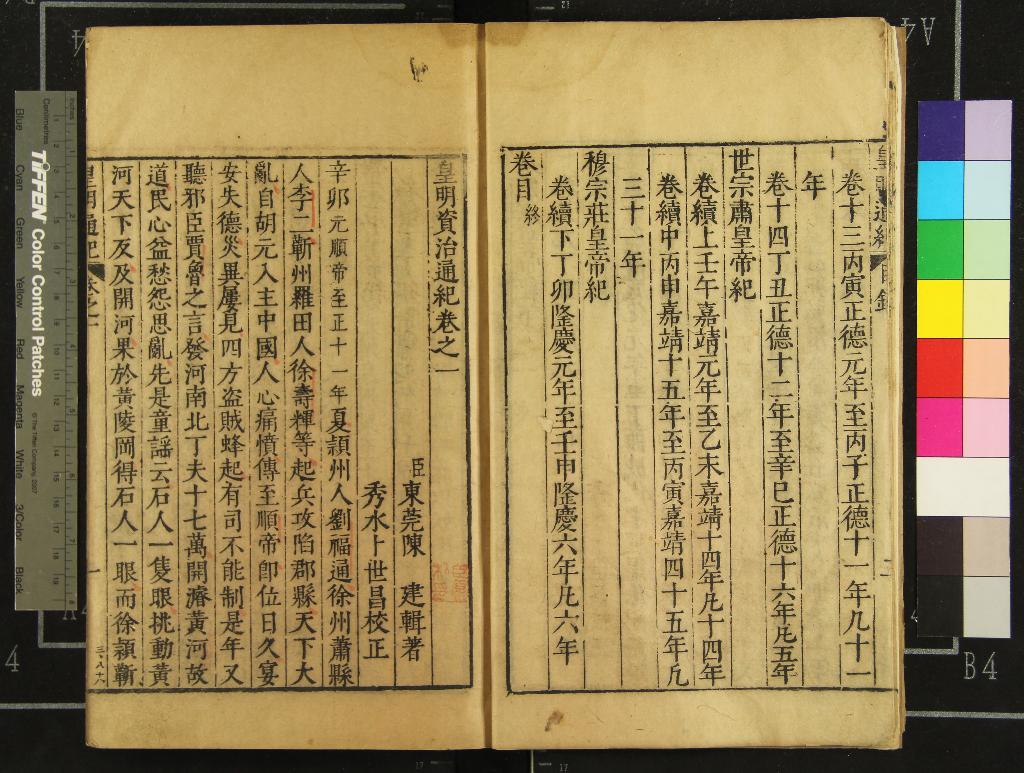 皇明通紀 目錄 二
卷十三丙寅正德元年至丙子正德十一年凡十一
年
卷十四丁丑正德十二年至辛巳正德十六年凡五年
世宗肅皇帝紀
卷續上壬午嘉靖元年至乙未嘉靖十四年凡十四年
卷續中丙申嘉靖十五年至丙寅嘉靖四十五年凡
三十一年
穆宗莊皇帝紀
卷續下丁卯隆慶元年至壬申隆慶六年凡六年
卷目終
皇明資治通紀卷之一
臣東莞陳 建輯著
秀水卜世昌校正
辛卯元順帝至正十一年夏潁州人劉福通徐州蕭縣
人李二蘄州羅田人徐壽輝等起兵攻陷郡縣天下大
亂自胡元入主中國人心痛憤傳至順帝即位日久宴
安失德災異屢見四方盜賊蜂起有司不能制是年又
聽邪臣賈魯之言發河南北丁夫十七萬開濬黃河故
道民心益愁怨思亂先是童謠云石人一隻眼挑動黃
河天下反及開河果於黃陵岡得石人一眼而徐潁蘄
皇明通紀 卷之一 一
三八六
TIFFEN Color Control Patches
© The Tiffen Company, 2007
Centimetres
Inches
Blue
Cyan
Green
Yellow
Red
Magenta
White
3/Color
Black
A4
B4